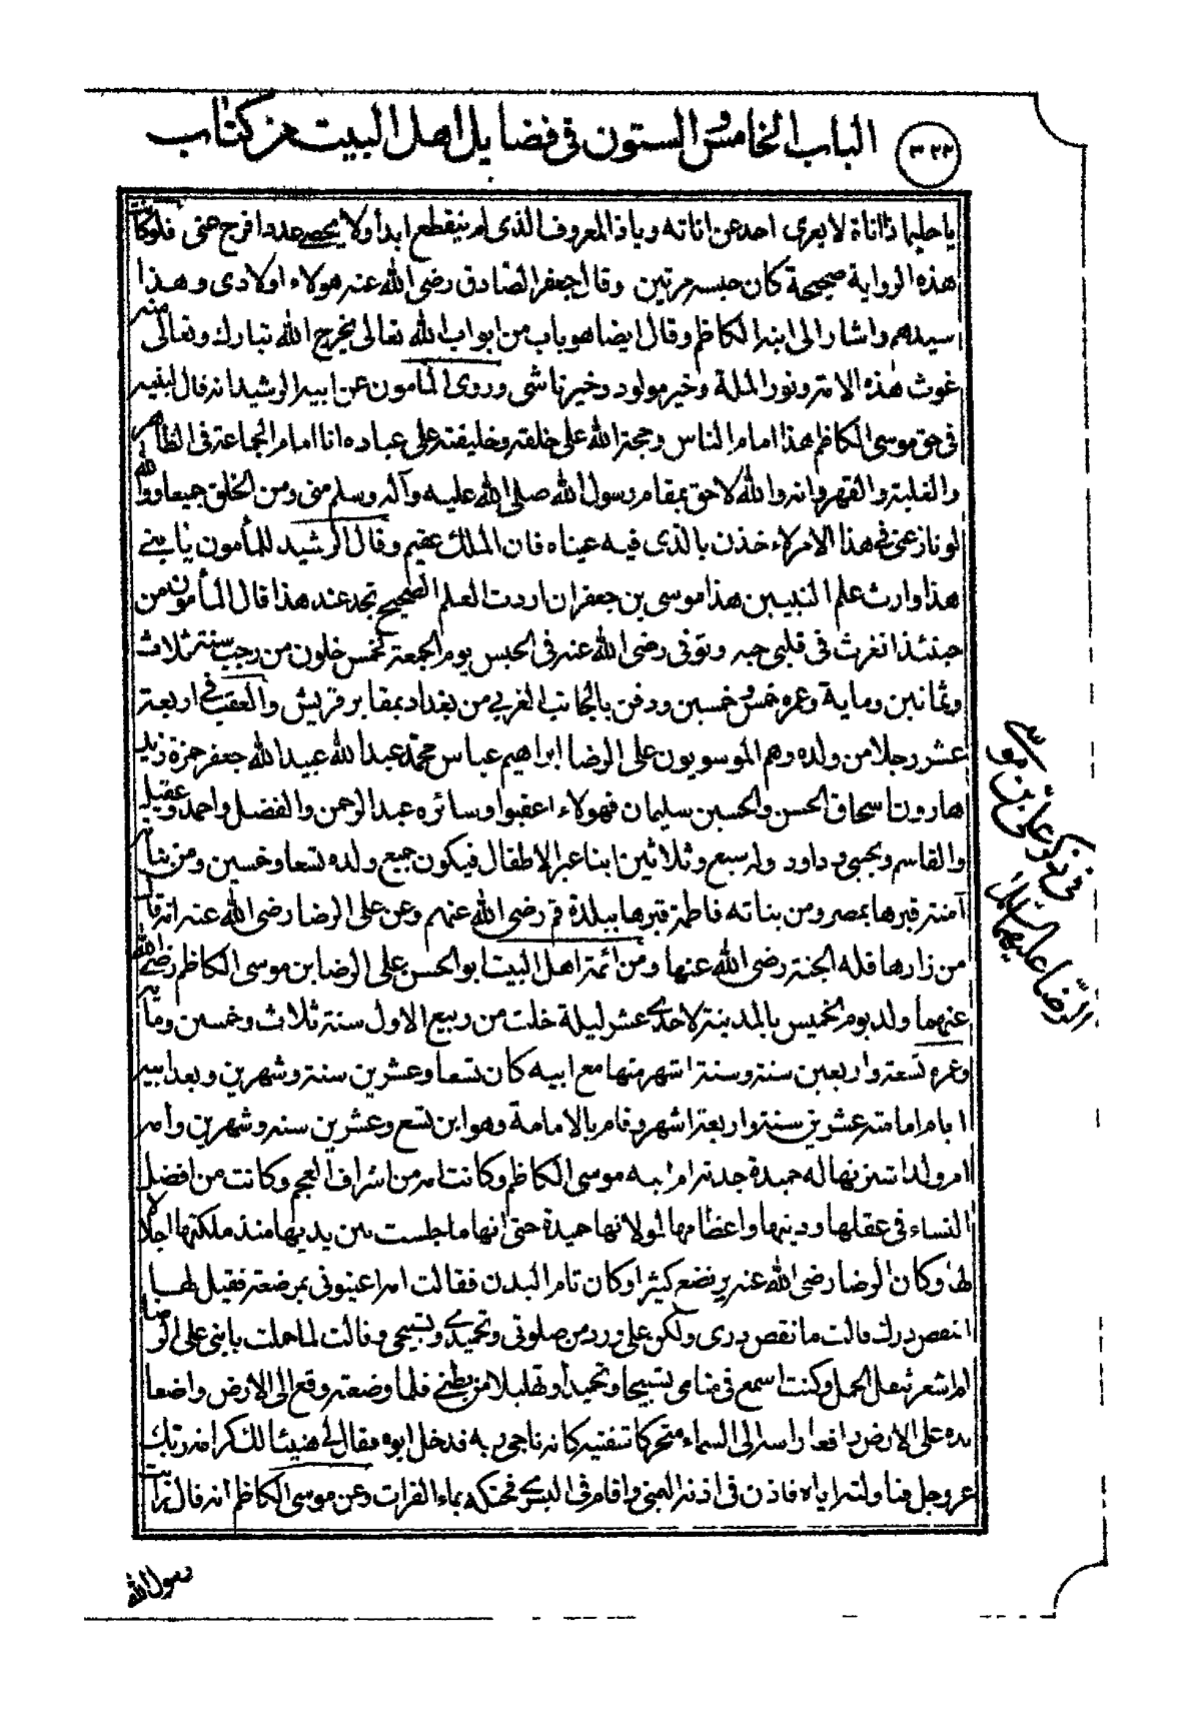 الباب الخامس والستون فى فضايل اهل البيت من كتاب
٣٢٣
يا حليما ذا اناة لا يعرى احد عن اناته ويا ذا المعروف الذى لم ينقطع ابدا ولا يحصى عددا فرج عنى فلو كانت
هذه الرواية صحيحة كان حبسه مرتين وقال جعفر الصادق رضى الله عنه هولاء اولادى وهذا
سيدهم واشار الى ابنه الكاظم وقال ايضا هو باب من ابواب الله تعالى يخرج الله تبارك وتعالى منه
غوث هذه الامة ونور الملة وخير مولود وخير ناشى وروى المامون عن ابيه الرشيد انه قال لبنيه
فى حق موسى الكاظم هذا امام الناس وحجة الله على خلقه وخليفته على عباده انا امام الجماعة فى الظاهر
والغلبة والقهر وانه والله لاحق بمقام رسول الله صلى الله عليه وآله وسلم منى ومن الخلق جميعا ووالله
لو نازعنى فى هذا الامر لاءخذن بالذى فيه عيناه فان الملك عقيم وقال الرشيد للمأمون يا بنى
هذا وارث علم النبيين هذا موسى بن جعفر ان اردت العلم الصحيح تجد عند هذا قال المأمون من
حينئذ انغرث فى قلبى حبه وتوفى رضى الله عنه فى الحبس يوم الجمعة لخمس خلون من رجب سنة ثلاث
وثمانين وماية وعمره خمس وخمسين ودفن بالجانب الغربى من بغداد بمقابر قريش والعقب فى اربعة
عشر رجلا من ولده وهم الموسويون على الرضا ابراهيم عباس محمد عبد الله عبيد الله جعفر حمزة زيد
هارون اسحاق الحسن والحسين سليمان فهولاء اعقبوا وسائره عبد الرحمن والفضل واحمد وعقيل
والقاسم ويحيى وداود وله سبع وثلاثين ابنا غير الاطفال فيكون جميع ولده تسعا وخمسين ومن بناته
آمنة قبرها بمصر ومن بناته فاطمة قبرها ببلدة قم رضى الله عنهم وعن على الرضا رضى الله عنه انه قال
من زارها فله الجنة رضى الله عنها ومن ائمة اهل البيت ابو الحسن على الرضا بن موسى الكاظم رضى الله
عنهما ولد يوم الخميس بالمدينة لاحدى عشر ليلة خلت من ربيع الاول سنة ثلاث وخمسين وماية
وعمره تسعة واربعين سنة وستة اشهر منها مع ابيه كان تسعا وعشرين سنة وشهرين وبعد ابيه
ايام امامته عشرين سنة واربعة اشهر وقام بالامامة وهو ابن تسع وعشرين سنه وشهرين وامه
ام ولد اشترتها له حميدة جدته ام ابيه موسى الكاظم وكانت امه من اشراف العجم وكانت من افضل
النساء فى عقلها ودينها واعظامها لمولاتها حميدة حتى انها ما جلست بين يديها منذ ملكتها اجلالا
لها وكان الرضا رضى الله عنه يرتضع كثيرا وكان تام البدن فقالت امه اعينونى بمرضعة فقيل لها
انقص درك قالت ما نقص درى ولكن على ورد من صلوتى وتحميدى وتسبيحى وقالت لما حملت بابنى على الرضا
لم اشعر بثقل الحمل وكنت اسمع فى منامى تسبيحا وتحميدا وتهليلا من بطنى فلما وضعته وقع الى الارض واضعا
يده على الارض رافعا راسه الى السماء متحركا شفتيه كانه ناجى ربه فدخل ابوه فقال لى هنيئا لك كرامة ربك
عز وجل فناولته اياه فاذن فى اذنه اليمنى واقام فى اليسرى فحنكه بماء الفرات وعن موسى الكاظم انه قال رايت
فى ذكر على بن موسى
الرضا عليهما السلام
رسول الله